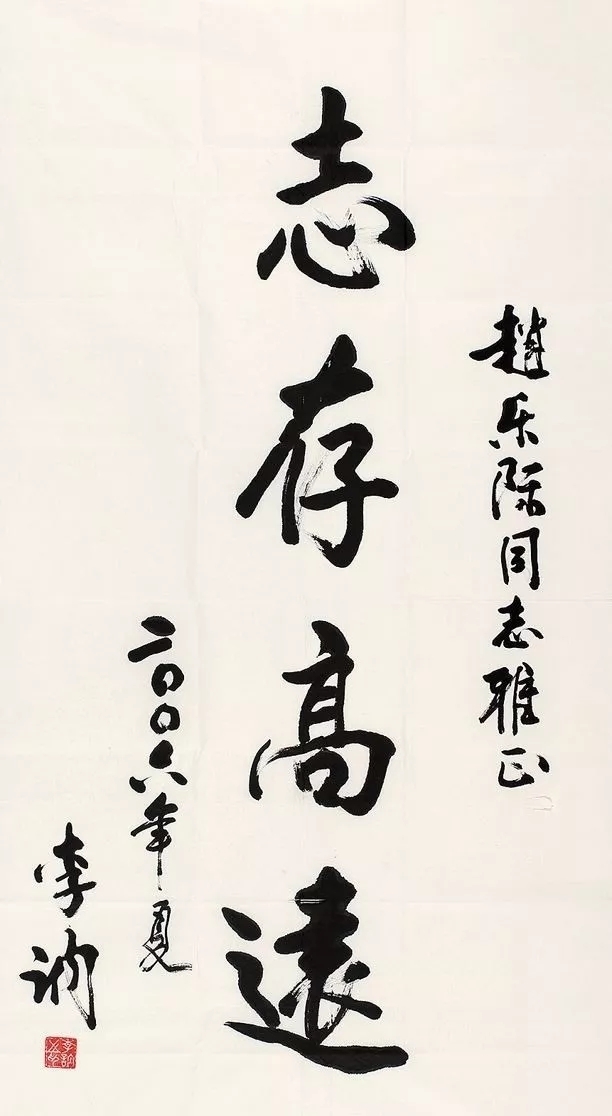 趙乐际同志雅正
志存高遠
二〇〇六年夏
李訥